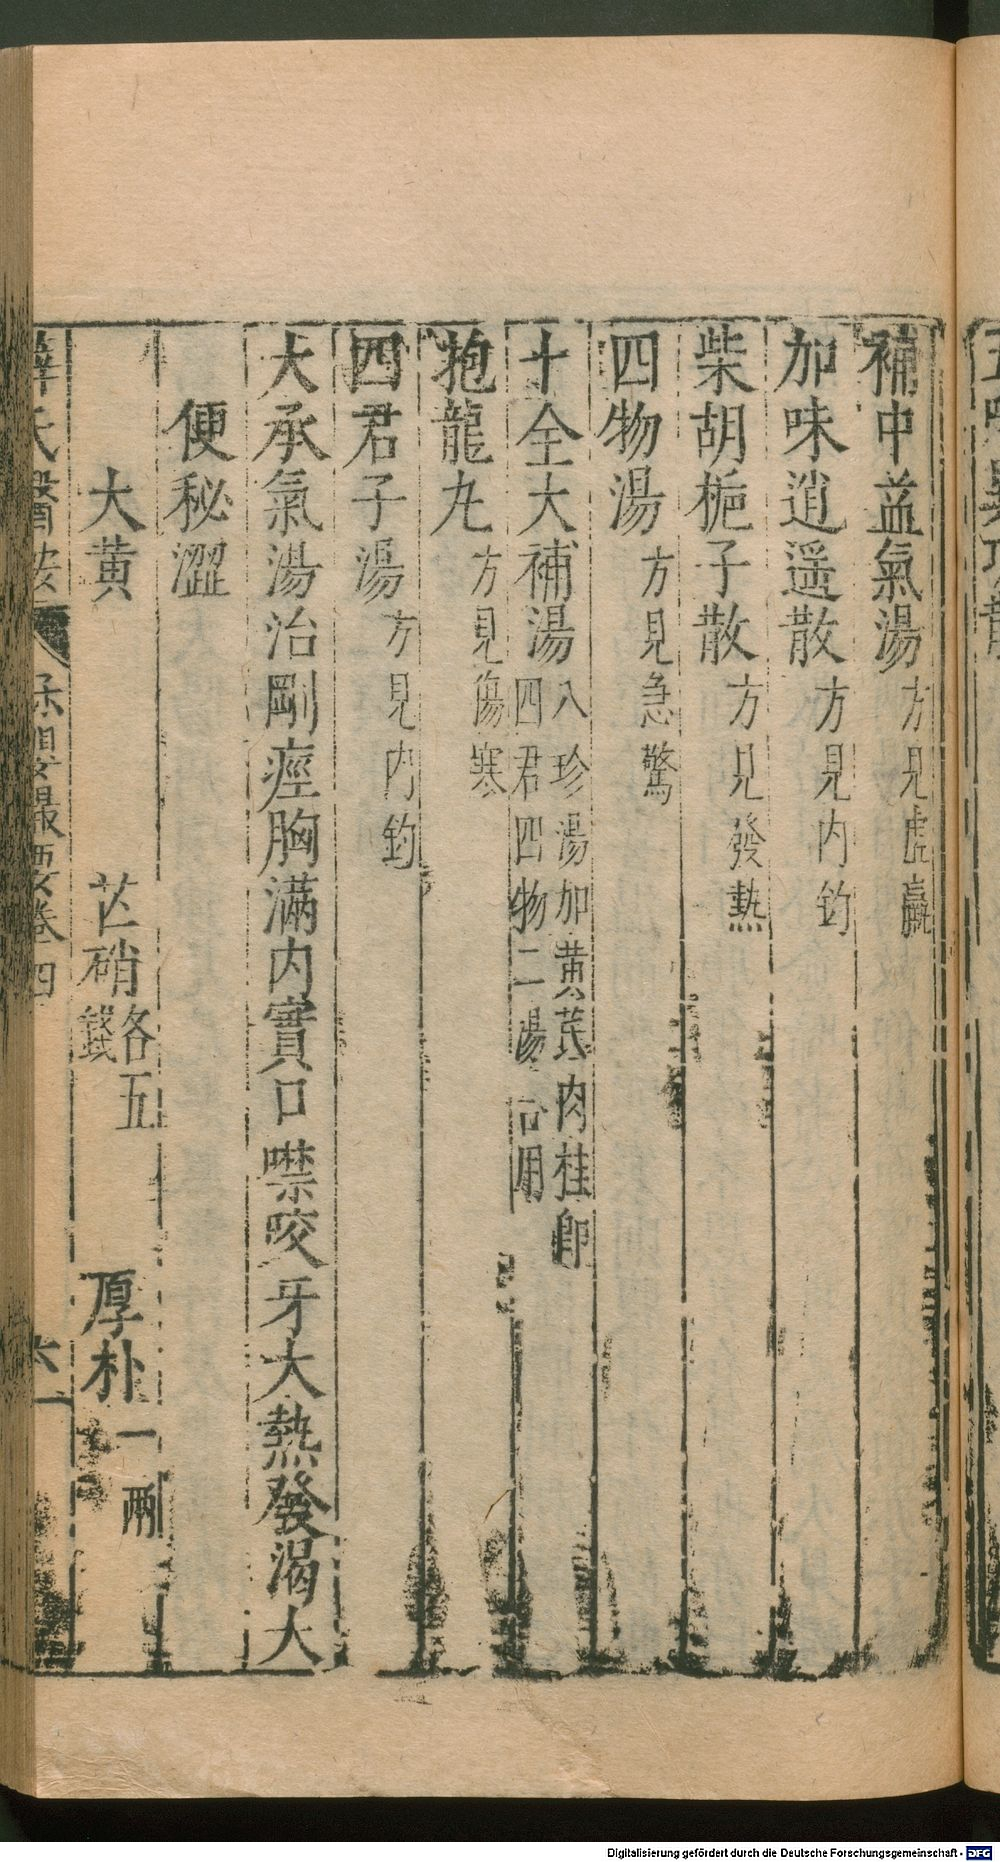 補中益氣湯方見虛羸
加味逍遥散方見内鈞
柴胡梔子散方見發熱
四物湯方見急驚
十全大補湯八珍湯加黄芪肉桂即
四君四物二湯合用
抱龍丸方見傷寒
四君子湯方見内鈞
大承氣湯治剛痙胸滿内實口噤咬牙大熱發渴大
便秘澀
大黄 芒硝各五錢 厚朴一兩
薛氏醫按 保嬰撮要卷四 六
Digitalisierung gefördert durch die Deutsche Forschungsgemeinschaft - DFG